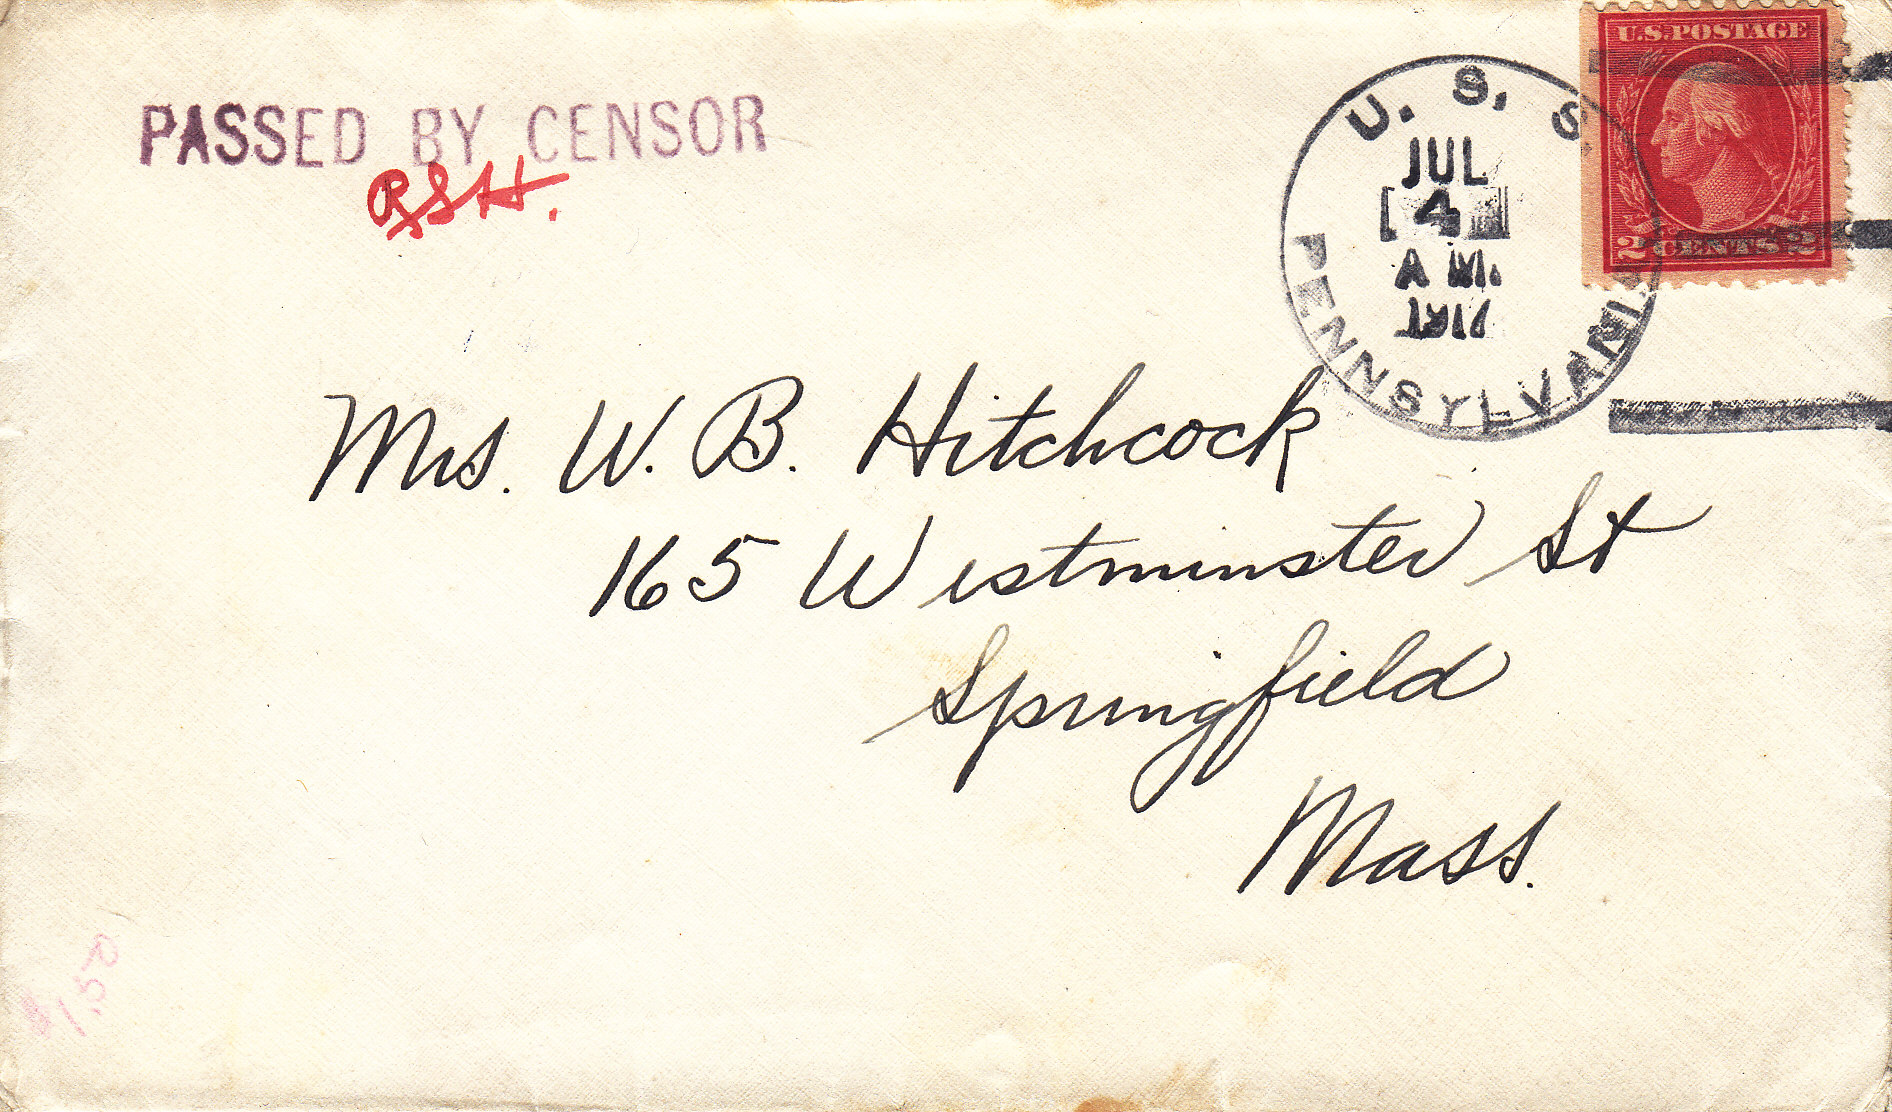 U.S.POSTAGE
2 CENTS 2
U. S. S.
JUL
4
A M.
PENNSYLVANIA
PASSED BY CENSOR
RSH.
Mrs. W. B. Hitchcock
165 Westminster St
Springfield
Mass.
$1.50